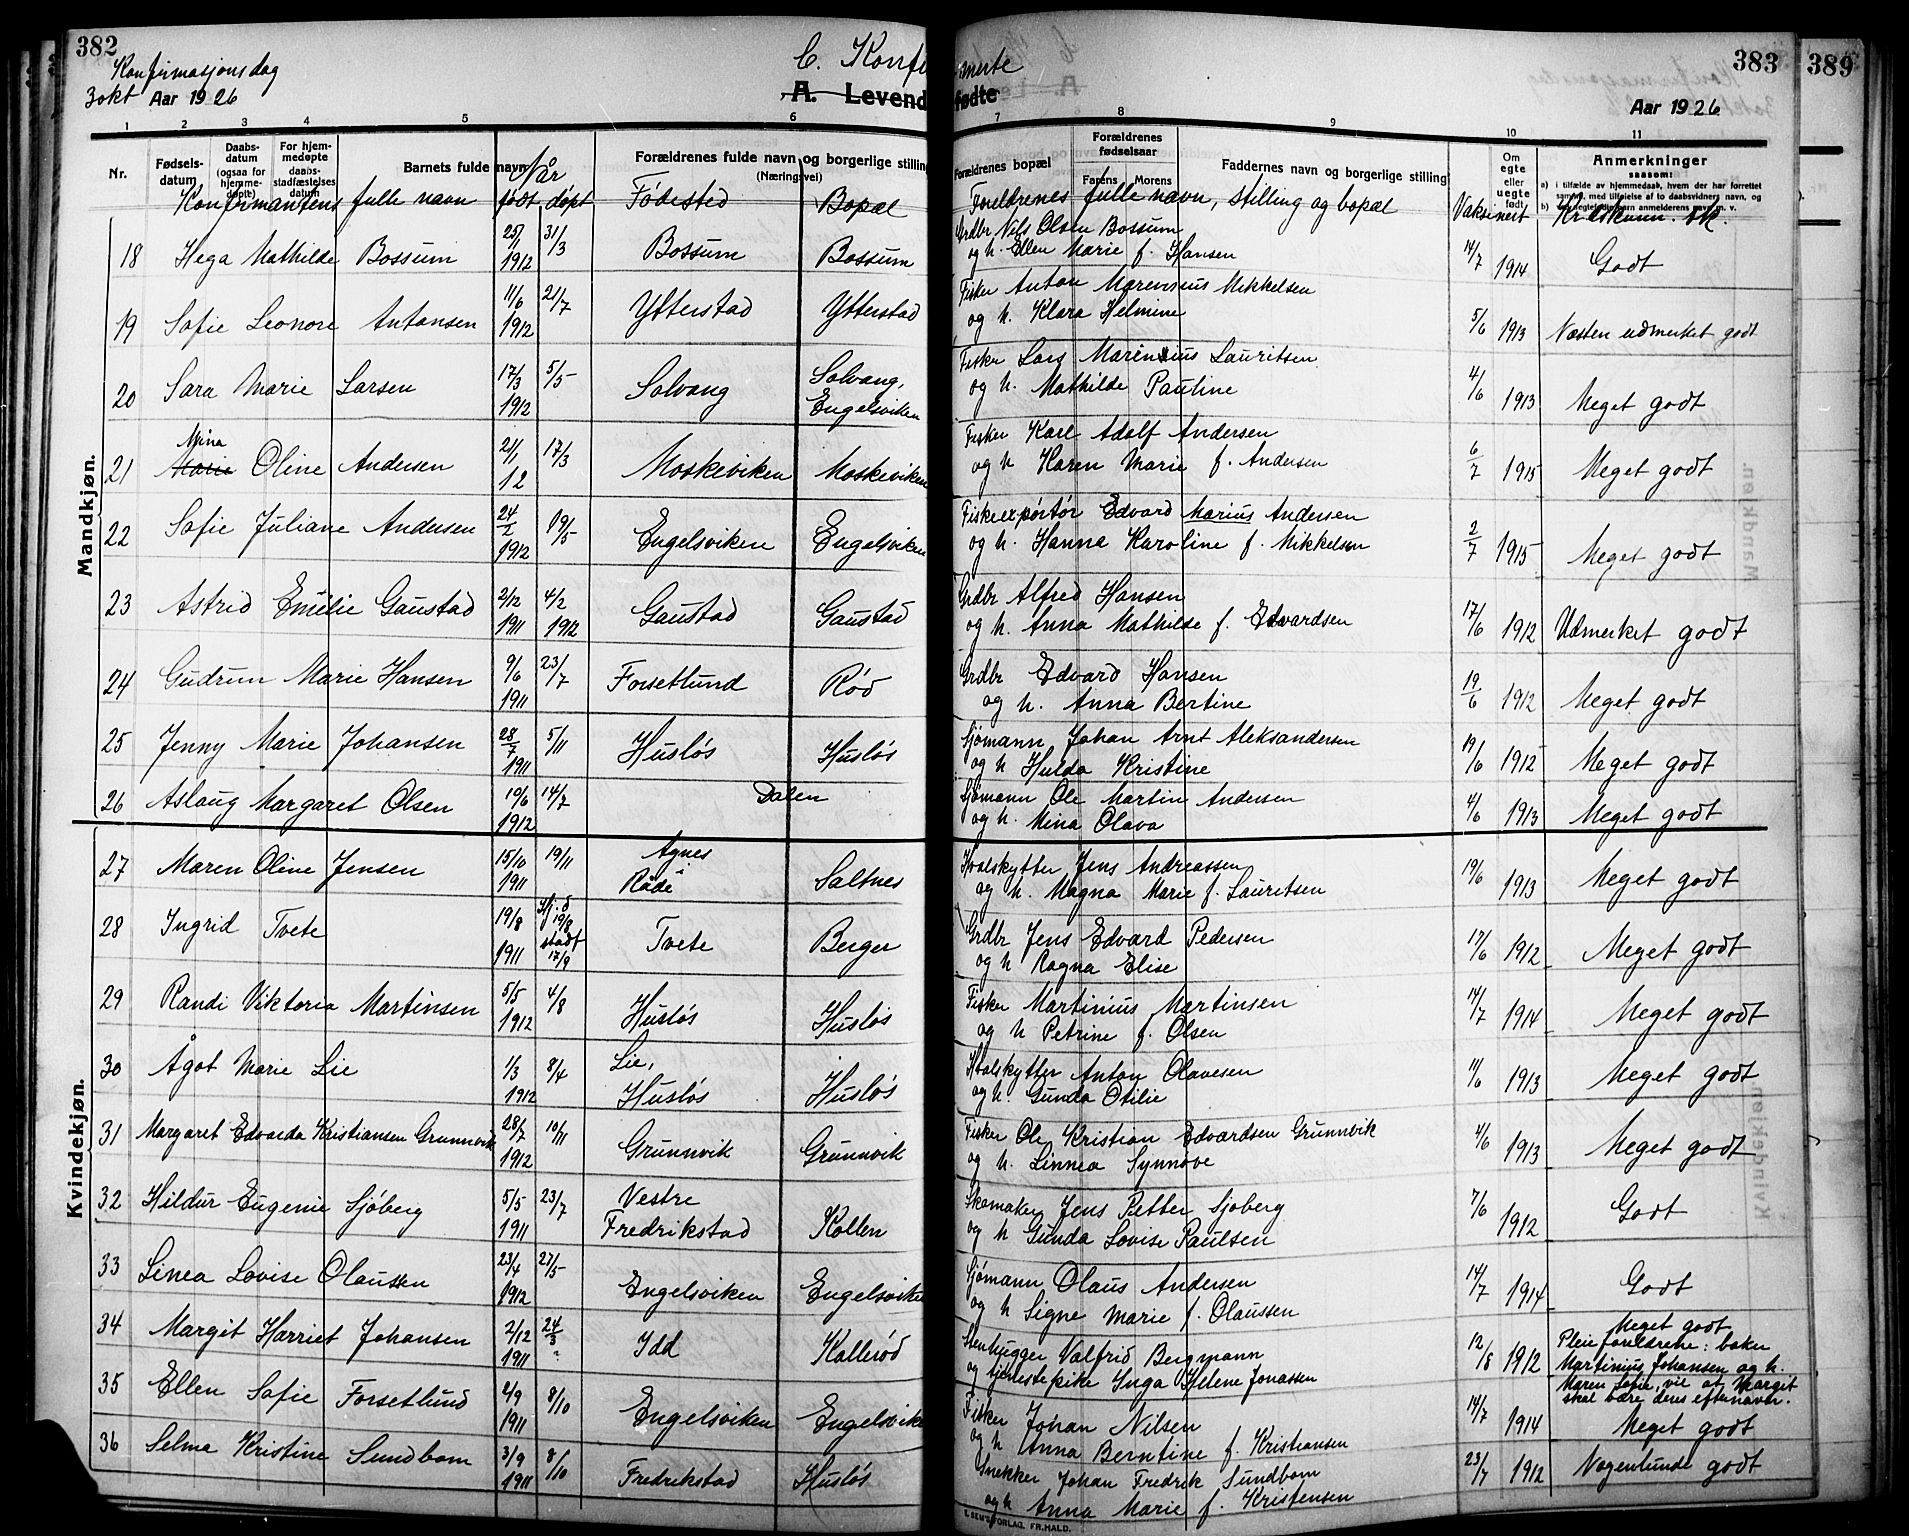 382
Konfirmasjonsdag
3 okt Aar 1926
C. Konfirmerte
A. Levendefødte
383
389
Aar 1926
1 2 3 4 5 6 7 8 9 10 11
Nr.
Fødsels-datum
Daabs-datum (ogsaa for hjemme-døpte)
For hjem-medøpte daabs-stadfæstelses datum
Barnets fulde navn
Forældrenes fulde navn og borgerlige stilling (Næringsvei)
Forældrenes bopæl
Forældrenes fødselsaar
Farens Morens
Faddernes navn og borgerlige stilling
Om egte eller uegte født
Anmerkninger
saasom:
a) i tilfælde av hjemmedaab, hvem der har forrettet samme, med tilføielse af to daabsvidners navn, og
Konfirmantens fulle navn
Når
født døpt
Fødested
Bopæl
Foreldrenes fulle navn, stilling og bopæl
Vaksinert
Mandkjøn.
18 Hega Mathilde Bossum 25/1 1912 31/3 Bossum Bossum Grdbr Nils Olsen Bossum
og h. Ellen Marie f. Hansen 14/7 1914 Godt
19 Sofie Leonore Antonsen 11/6 1912 21/7 Ytterstad Ytterstad Fisker Anton Marensius Mikkelsen
og h. Klara Helmine 5/6 1913 Næsten udmerket godt
20 Sara Marie Larsen 17/3 1912 5/5 Solvang Solvang, Engelsviken Fisker Lars Marensius Lauritsen
og h. Mathilde Pauline 4/6 1913 Meget godt
21 Mina Marie Oline Andersen 21/1 12 17/3 Moskeviken Moskeviken Fisker Karl Adolf Andersen
og h Karen Marie f. Andersen 6/7 1915 Meget godt
22 Sofie Juliane Andersen 24/2 1912 19/5 Engelsviken Engelsviken Fiskeexportør Edvard Marius Andersen
og h. Hanna Karoline f. Mikkelsen 2/7 1915 Meget godt
23 Astrid Emilie Gaustad 2/12 1911 4/2 1912 Gaustad Gaustad Grdbr Alfred Hansen
og h. Anna Mathilde f. Edvardsen 17/6 1912 Udmerket godt
24 Gudrun Marie Hansen 9/6 1911 23/7 Forsetlund Rød Grdbr Edvard Hansen
og h. Anna Bertine 19/6 1912 Meget godt
25 Jenny Marie Johansen 28/7 1911 5/11 Husløs Husløs Sjømann Johan Arnt Aleksandersen
og h Hulda Kristine 19/6 1912 Meget godt
26 Aslaug Margaret Olsen 19/6 1912 14/7 Dalen Sjømann Ole Martin Andersen
og h. Mina Olava 4/6 1913 Meget godt
Kvindekjøn.
27 Maren Oline Jensen 15/10 1911 19/11 Agnes Råde Saltnes Hvalskytter Jens Andreassen
og h. Magna Marie f. Lauritsen 19/6 1913 Meget godt
28 Ingrid Tvete 19/8 1911 Hj.d 19/8 stadf 17/9 Tvete Berger Grdbr Jens Edvard Pedersen
og h Ragna Elise 17/6 1912 Meget godt
29 Randi Viktoria Martinsen 5/5 1912 4/8 Husløs Husløs Fisker Martinius Martinsen
og h Petrine f. Olsen 14/7 1914 Meget godt
30 Ågot Marie Lie 1/3 1912 8/4 Lie, Husløs Husløs Hvalskytter Anton Olavesen
og h. Gunda Otilie 11/6 1913 Meget godt
31 Margaret Edvarda Kristiansen Grunnvik 28/7 1912 10/11 Grunnvik Grunnvik Fisker Ole Kristian Edvardsen Grunnvik
og h. Linnea Synnøve 4/6 1913 Meget godt
32 Hildur Eugenie Sjøberg 5/5 1911 23/7 Vestre Fredrikstad Kollen Skomaker Jens Petter Sjøberg
og h Gunda Lovise Paulsen 7/6 1912 Godt
33 Linea Lovise Olaussen 23/4 1912 27/5 Engelsviken Engelsviken Sjømann Olaus Andersen
og h Signe Marie f. Olaussen 14/7 1914 Godt
34 Margit Harriet Johansen 2/12 1911 24/3 Idd Kallerød Stenhugger Valfrid Bergmann
og tjenestepike Inga Helene Jonassen 12/8 1912 Meget godt
Pleieforeldrene: baker
Martinius Johansen og h.
Maren Sofie, vil at Margit
skal bære deres efternavn.
35 Ellen Sofie Forsetlund 2/9 1911 8/10 Engelsviken Engelsviken Fisker Johan Nilsen
og h Anna Berntine f. Kristiansen 14/7 1914 Meget godt
36 Selma Kristine Sundbom 3/9 1911 8/10 Fredrikstad Husløs Snekker Johan Fredrik Sundbom
og h Anna Marie f. Kristensen 23/7 1912 Nogenlunde godt
FORLAG, FR.HALD.